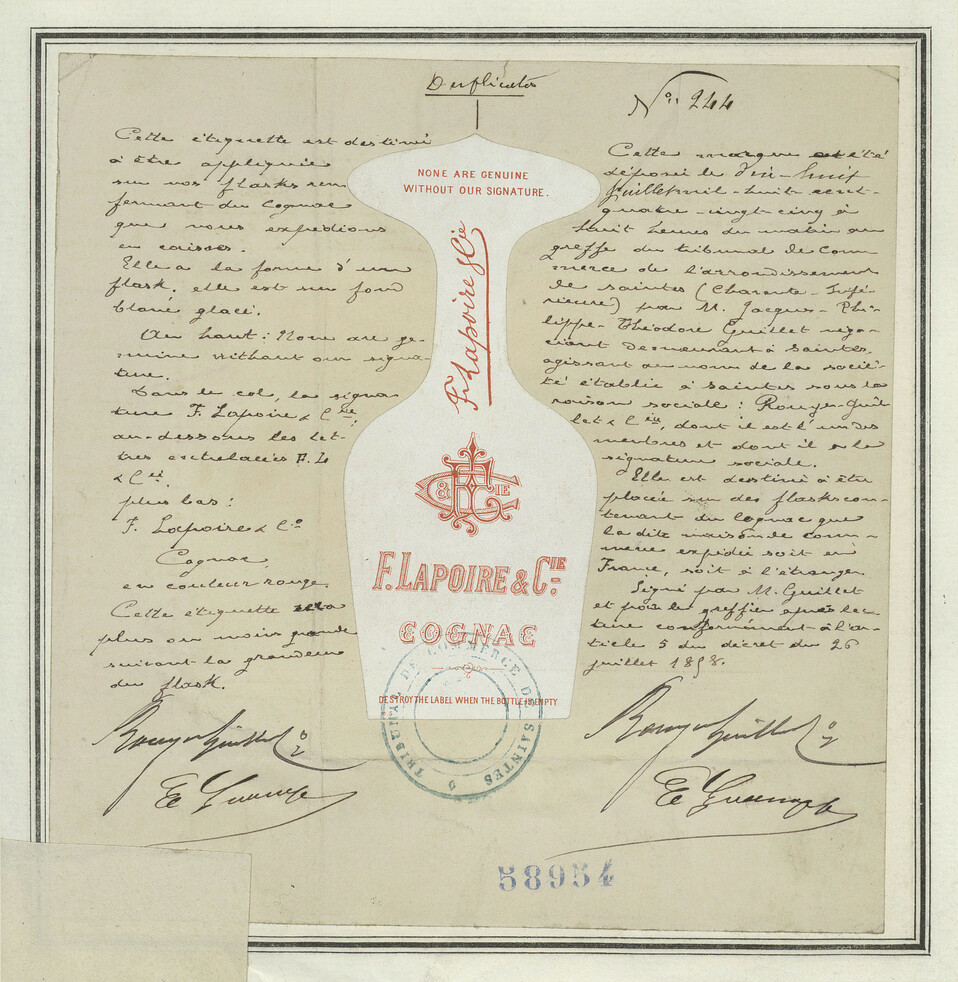 Duplicata
N° 244
Cette étiquette est destiné
à être appliquée
sur nos flasks ren-
fermant du Cognac
que nous expédions
en caisses.
Elle a la forme d'un
flask, elle est sur fond
blanc glacé.
Au haut: None are ge-
nuine without our signa-
ture.
Dans le col, la signa-
ture F. Lapoire & Cie;
au-dessous les let-
tres entrelacées F. L
& Cie.
plus bas:
F. Lapoire & Co
Cognac,
en couleur rouge.
Cette étiquette sera
plus ou moins grande
suivant la grandeur
du flask.
Rouyer Guillet Co
NONE ARE GENUINE
WITHOUT OUR SIGNATURE.
F. Lapoire & Cie
& IE
F. LAPOIRE & CIE
COGNAC
DESTROY THE LABEL WHEN THE BOTTLE IS EMPTY
TRIBUNAL DE COMMERCE DE SAINTES
Cette marque a été
déposée le dix-huit
Juillet mil-huit-cent-
quatre-vingt-cinq à
huit heures du matin au
greffe du tribunal de Com-
merce de l'arrondissement
de Saintes (Charente-Infé-
rieure) par M. Jacques-Phi-
lippe-Théodore Guillet négo-
ciant demeurant à Saintes,
agissant au nom de la socié-
té établie à Saintes sous la
raison sociale: Rouyer-Guil-
let & Cie, dont il est l'un des
membres et dont il a la
signature sociale.
Elle est destiné à être
placée sur des flasks con-
tenant du Cognac que
la dite maison de com-
merce expédie soit en
France, soit à l'étranger.
Signé par M. Guillet
et par le greffier après lec-
ture conformément à l'ar-
ticle 5 du décret du 26
juillet 1858.
Rouyer Guillet Co
58954